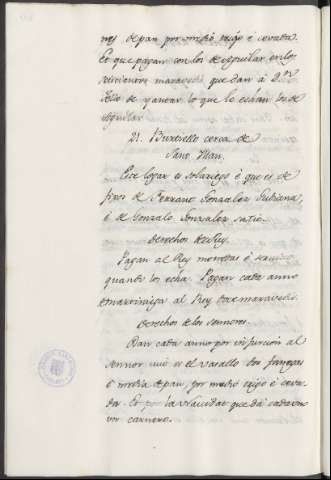 nes de pan por medio trigo e cevada.
Et que pagan con los de aguilar en los
seiscientos maravedis, que dan á D.n
Tello de yantar lo que le echan los de
Aguilar.
21. Bustiello cerca de
Sant Mar.
Este logar es solariego é que es de
fijos de Ferrant Gonzalez
é de Gonzalo Gonzalez
derechos del Rey.
Pagan al Rey monedas é servicios
quando los echa. Pagan cada anno
de marzniega al Rey doce maravedis.
derechos de los sennores.
Dan cada anno por infurcion al
sennor cuio es el vasallo dos fanegas
é media de pan, por medio trigo é ceva-
da. Et por la vecindat que dá cada un
un carnero.